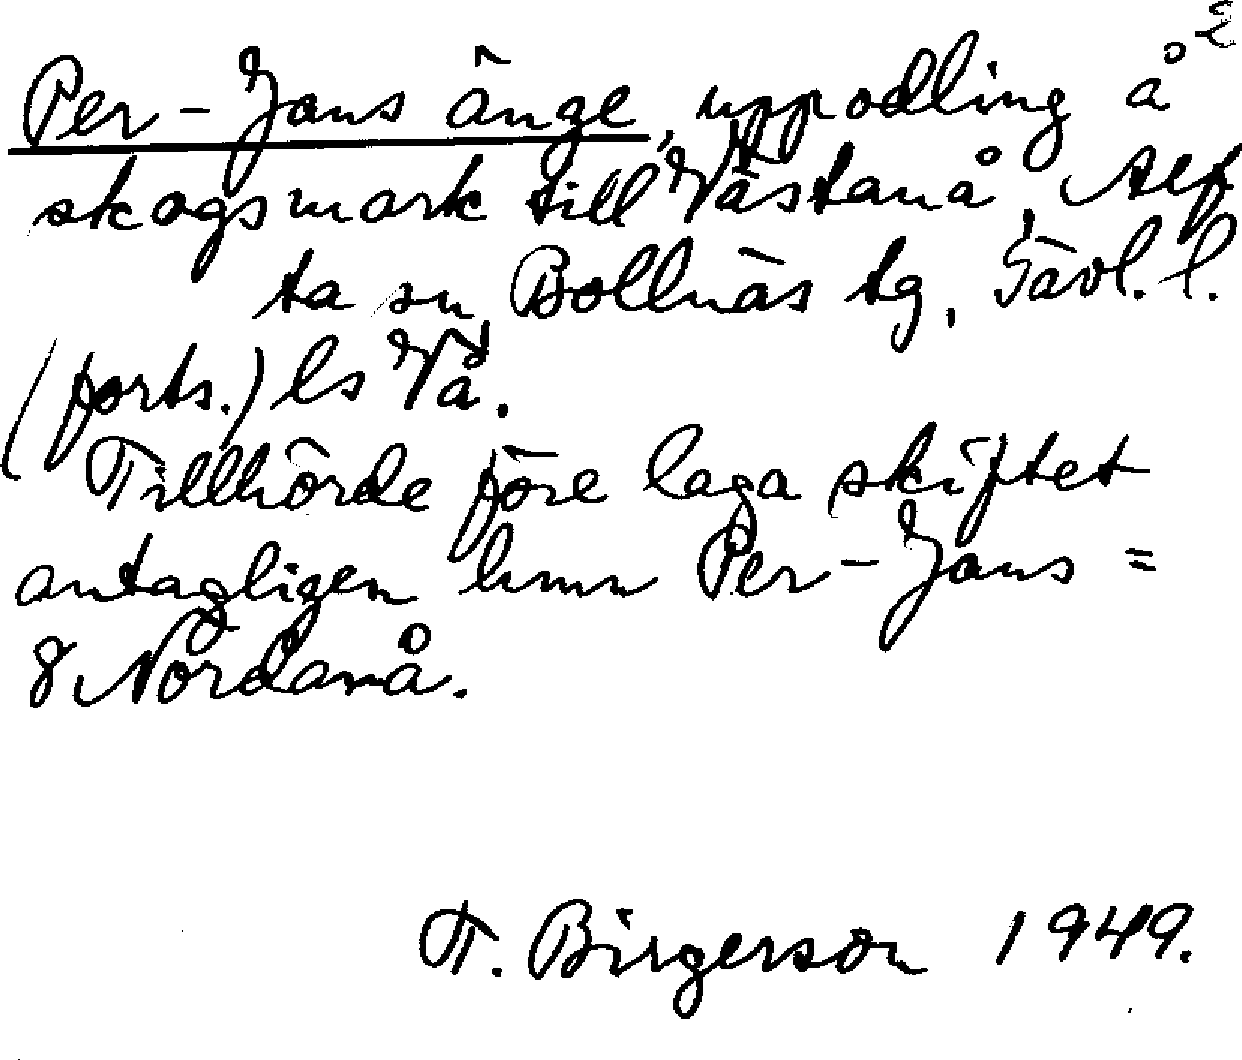 2
Per-Jans änge, uppodling å
skogsmark till Västanå, Alf
ta sn, Bollnäs tg, Gävl. l.
(forts.) ls Vå.
Tillhörde före laga skiftet
antagligen hmn Per-Jans =
8 Nordanå.
T. Birgerson 1949.